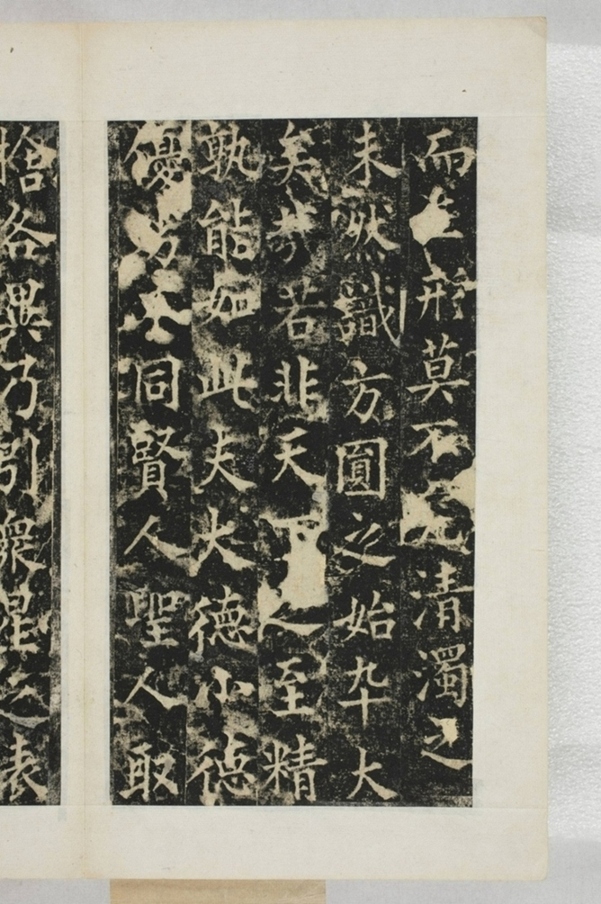 而形莫不清濁之
未然識方圓之始卆大
矣哉若非天下之至精
孰能如此夫大德小德
優劣不同賢人聖人取
捨各異乃引衆星之表